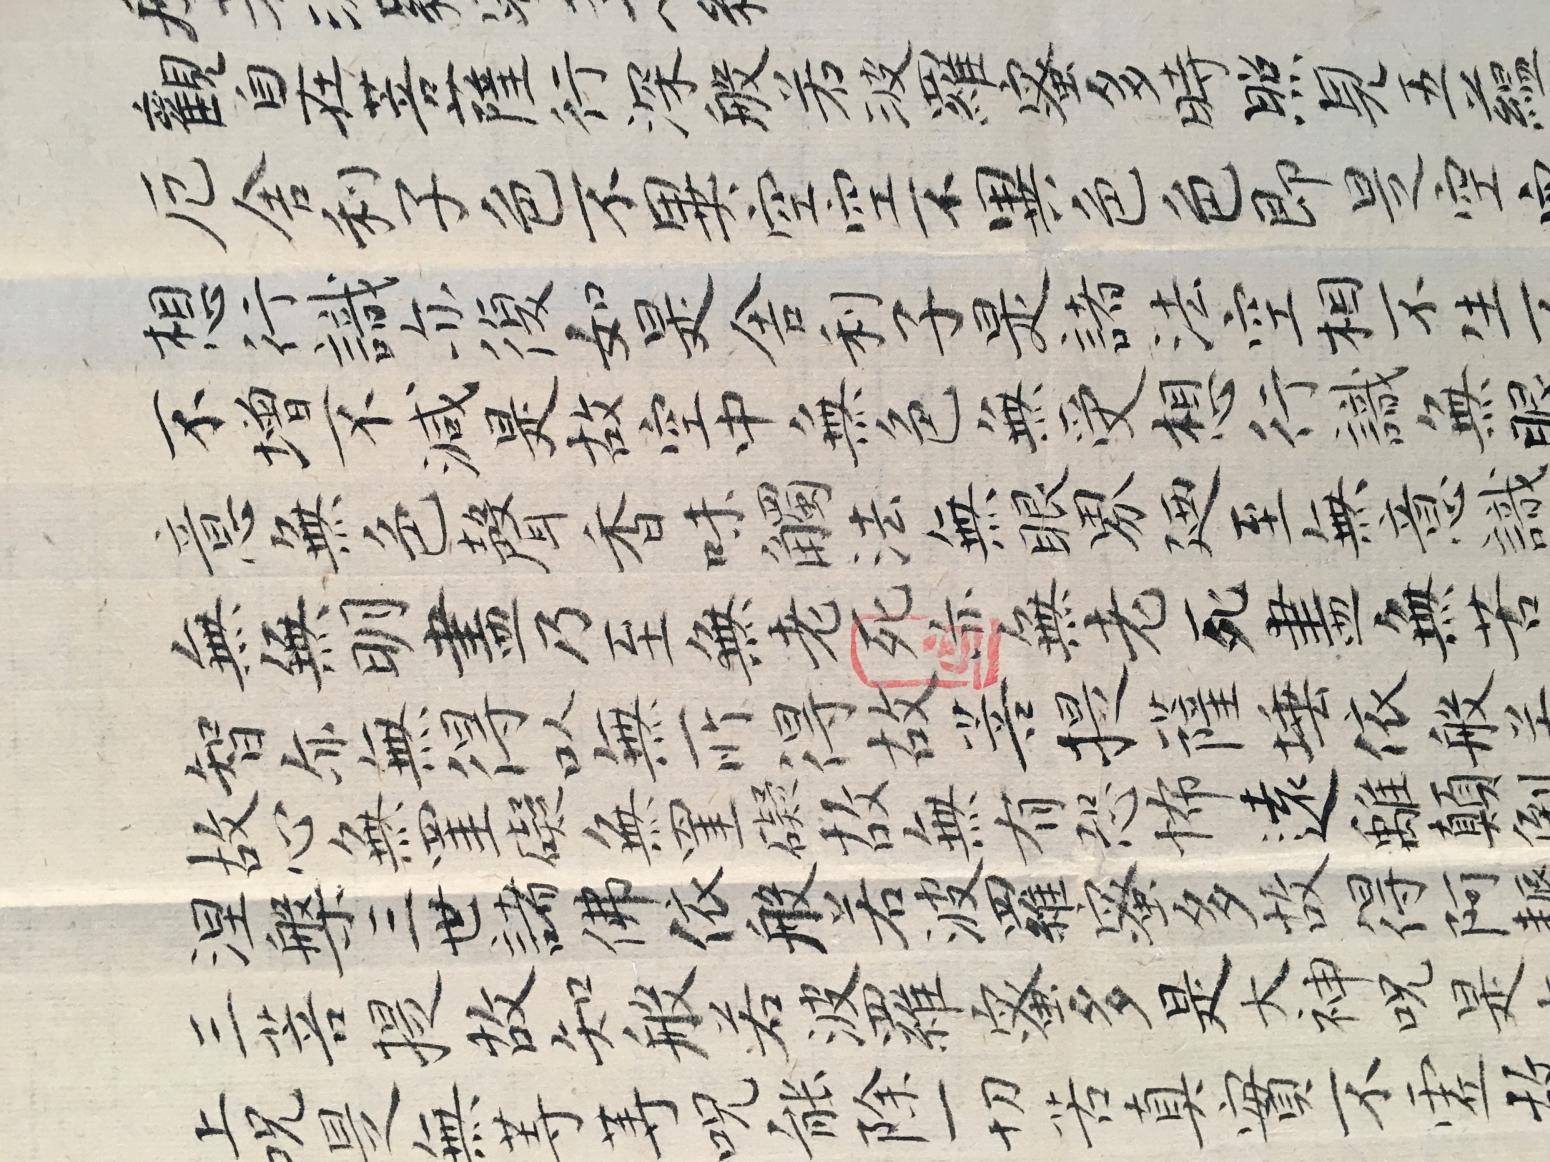 觀自在菩薩行深般若波羅蜜多時照見五蘊
厄舍利子色不異空空不異色色即是空
想行識亦復如是舍利子是諸法空相不生
不增不減是故空中無色無受想行識無眼
意無色聲香味觸法無眼界廼至無意識
無無明盡乃至無老死亦無老死盡無苦
智亦無得以無所得故菩提薩埵依般若
故心無罣礙無罣礙故無有恐怖遠離顛倒
涅槃三世諸佛依般若波羅蜜多故得阿耨
三菩提故知般若波羅蜜多是大神呪是
上呪是無等等呪能除一切苦真實不虛故